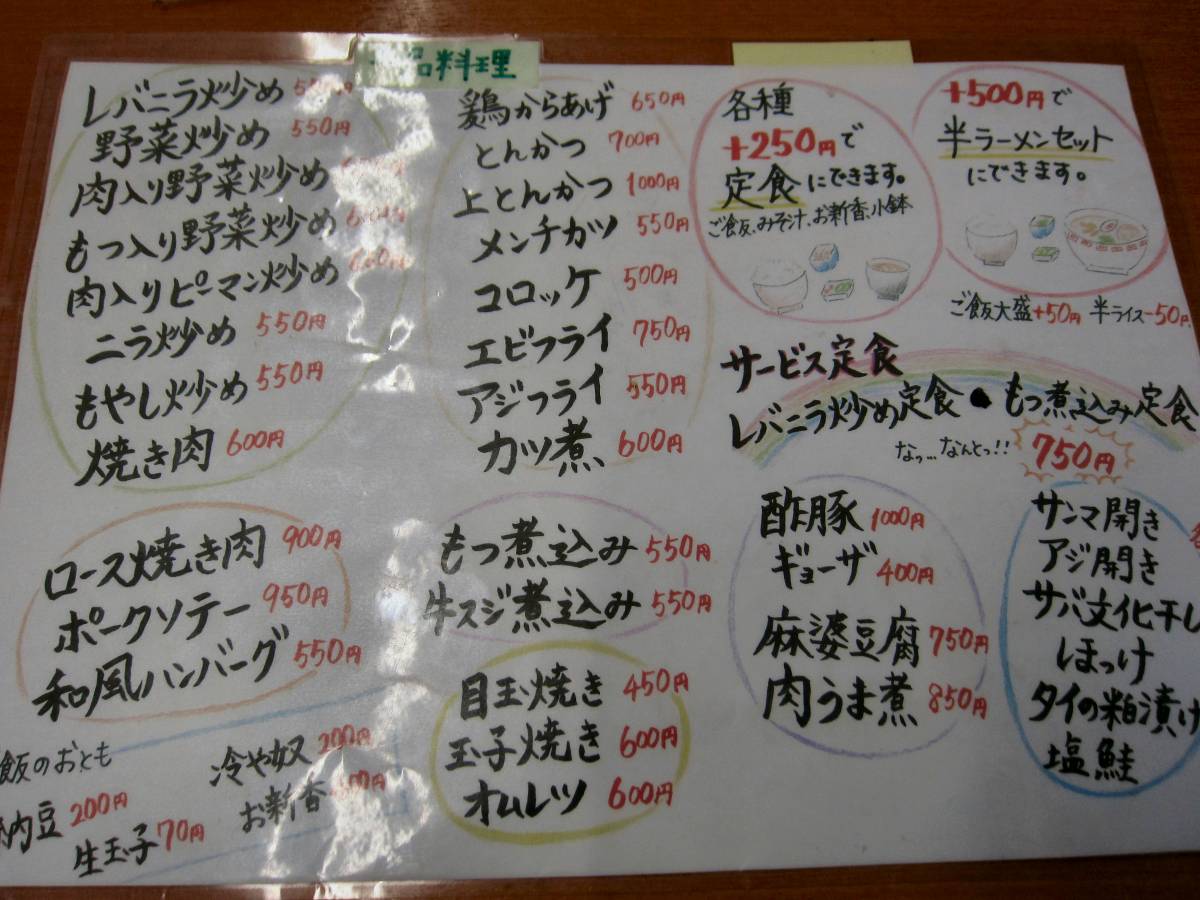 品料理
レバニラ炒め
野菜炒め 550円
肉入り野菜炒め
もつ入り野菜炒め
肉入りピーマン炒め
ニラ炒め 550円
もやし炒め 550円
焼き肉 600円
鶏からあげ 650円
とんかつ 700円
上とんかつ 1000円
メンチカツ 550円
コロッケ 500円
エビフライ 750円
アジフライ 550円
カツ煮 600円
各種
+250円で
定食にできます。
ご飯、みそ汁、お新香、小鉢
+500円で
半ラーメンセット
にできます。
ご飯大盛+50円 半ライス-50円
サービス定食
レバニラ炒め定食●もつ煮込み定食
なっ…なんとっ!! 750円
ロース焼き肉 900円
ポークソテー 950円
和風ハンバーグ 550円
もつ煮込み 550円
牛スジ煮込み 550円
目玉焼き 450円
玉子焼き 600円
オムレツ 600円
酢豚 1000円
ギョーザ 400円
麻婆豆腐 750円
肉うま煮 850円
サンマ開き
アジ開き
サバ文化干し
ほっけ
タイの粕漬け
塩鮭
飯のおとも
納豆 200円
生玉子 70円
冷や奴 200円
お新香